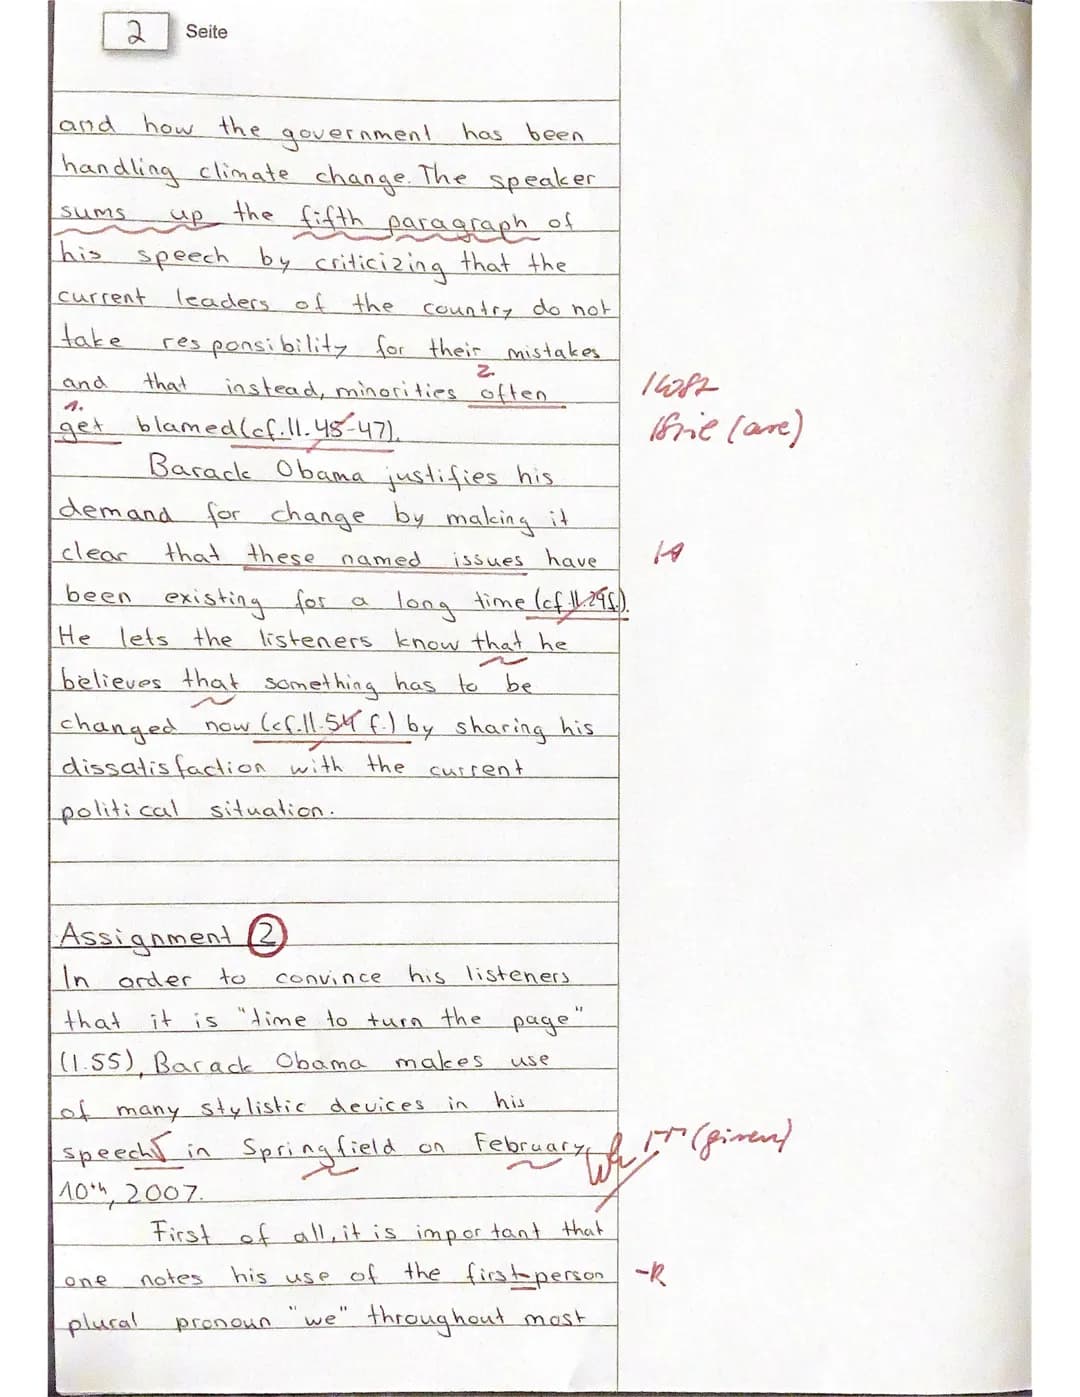 2 Seite
and how the government has been
handling climate change. The speaker
sums up the fifth paragraph of
his speech by criticizing that the
current leaders of the country do not
take responsibility for their mistakes
2.
and that instead, minorities often
1.
get blamed (cf. ll. 45-47). (are)
Barack Obama justifies his
demand for change by making it
clear that these named issues have
been existing for a long time (cf. ll. 29f.).
He lets the listeners know that he
believes that something has to be
changed now (cf. ll. 54 f.) by sharing his
dissatisfaction with the current
political situation.
Assignment 2
In order to convince his listeners
that it is "time to turn the page"
(l. 55), Barack Obama makes use
of many stylistic devices in his
speech in Springfield on February (given)
10th, 2007.
First of all, it is important that
one notes his use of the first-person -R
plural pronoun "we" throughout most